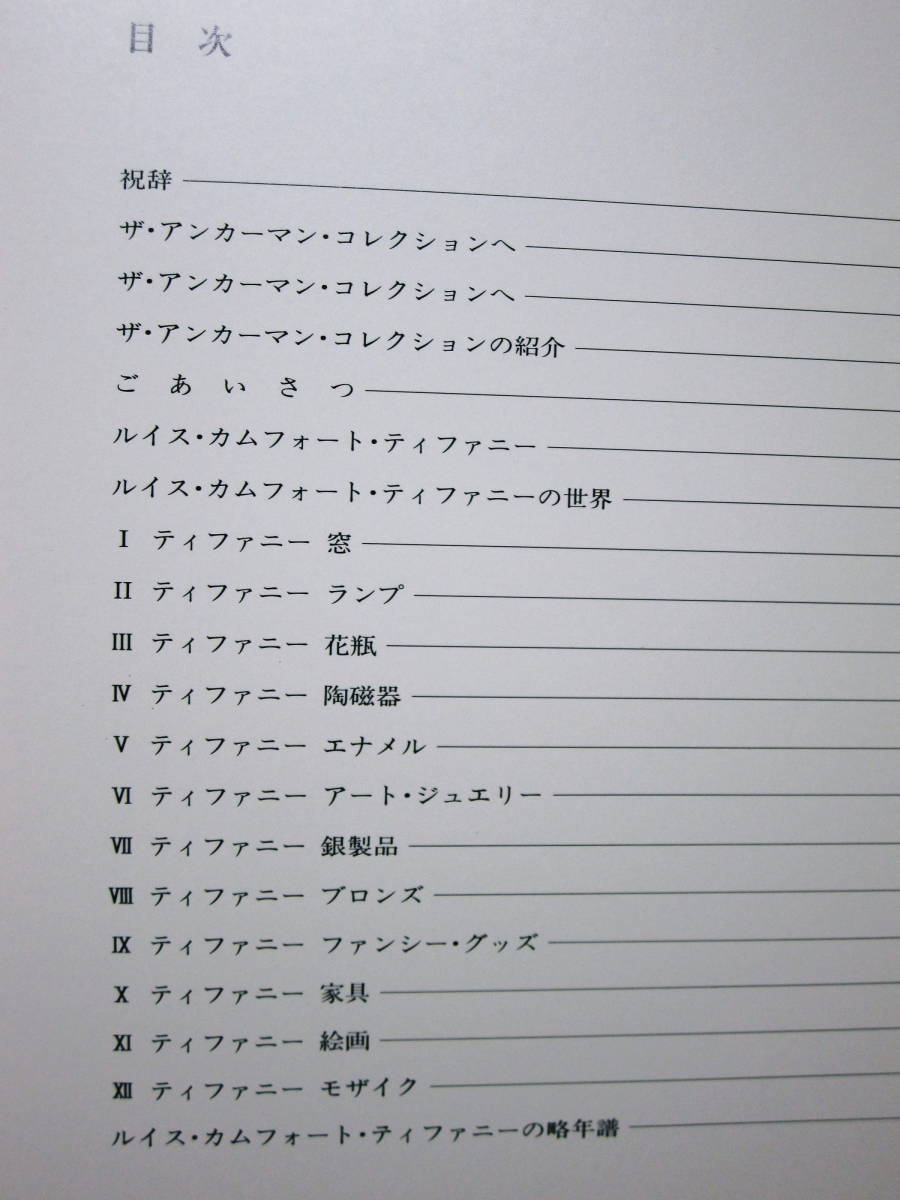 目 次
祝辞
ザ・アンカーマン・コレクションへ
ザ・アンカーマン・コレクションへ
ザ・アンカーマン・コレクションの紹介
ご あ い さ つ
ルイス・カムフォート・ティファニー
ルイス・カムフォート・ティファニーの世界
I ティファニー 窓
II ティファニー ランプ
III ティファニー 花瓶
IV ティファニー 陶磁器
V ティファニー エナメル
VI ティファニー アート・ジュエリー
VII ティファニー 銀製品
VIII ティファニー ブロンズ
IX ティファニー ファンシー・グッズ
X ティファニー 家具
XI ティファニー 絵画
XII ティファニー モザイク
ルイス・カムフォート・ティファニーの略年譜